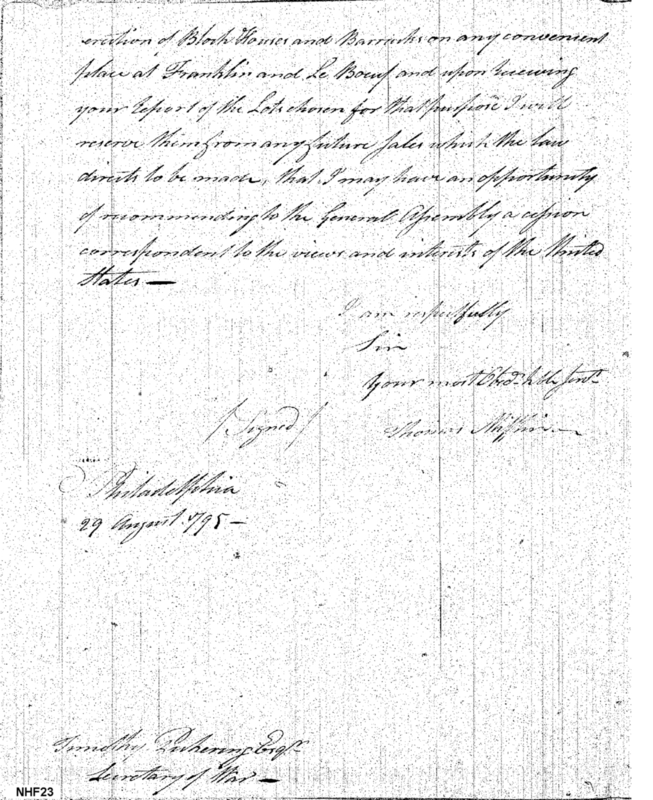 erection of Block Houses and Barracks on any convenient
place at Franklin and Le Boeuf and upon receiving
your Report of the Lots chosen for that purpose I will
reserve them from any future Sales which the law
directs to be made, that I may have an opportunity
of recommending to the General Assembly a cession
correspondent to the views and interests of the United
States —
I am respectfully
Sir
Your most Obedt. hble Servt.
(Signed) Thomas Mifflin
Philadelphia
29 August 1795 —
Timothy Pickering Esqr.
Secretary of War —
NHF23